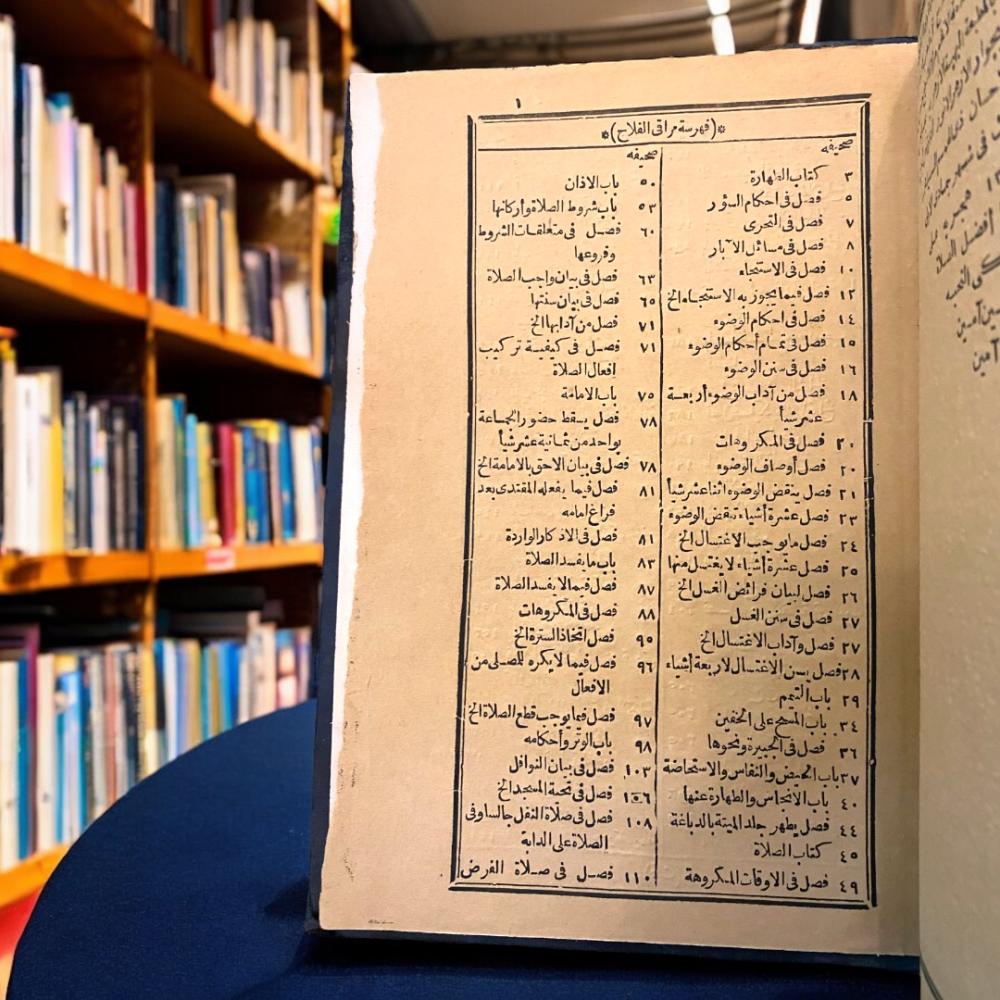 ١
*(فهرسة مراقى الفلاح)*
صحيفه
٣ كتاب الطهارة
٥ فصل فى أحكام السؤر
٧ فصل فى التحرى
٨ فصل فى مسائل الآبار
١٠ فصل فى الاستنجاء
١٢ فصل فيما يجوز به الاستنجاء الخ
١٤ فصل فى أحكام الوضوء
١٥ فصل فى تمام أحكام الوضوء
١٦ فصل فى سنن الوضوء
١٨ فصل من آداب الوضوء أربعة
عشر شيأ
٢٠ فصل فى المكروهات
٢٠ فصل أوصاف الوضوء
٢١ فصل ينقض الوضوء اثنا عشر شيأ
٢٣ فصل عشرة أشياء لا تنقض الوضوء
٢٤ فصل ما يوجب الاغتسال الخ
٢٥ فصل عشرة أشياء لا يغتسل منها
٢٦ فصل لبيان فرائض الغسل الخ
٢٧ فصل فى سنن الغسل
٢٧ فصل وآداب الاغتسال الخ
٢٨ فصل يسن الاغتسال لاربعة أشياء
٢٩ باب التيمم
٣٤ باب المسح على الخفين
٣٦ فصل فى الجبيرة ونحوها
٣٧ باب الحيض والنفاس والاستحاضة
٤٠ باب الانجاس والطهارة عنها
٤٤ فصل يطهر جلد الميتة بالدباغة
٤٥ كتاب الصلاة
٤٩ فصل فى الاوقات المكروهة
صحيفه
٥٠ باب الاذان
٥٣ باب شروط الصلاة وأركانها
٦٠ فصل فى متعلقات الشروط
وفروعها
٦٣ فصل فى بيان واجب الصلاة
٦٥ فصل فى بيان سننها
٧١ فصل من آدابها الخ
٧١ فصل فى كيفية تركيب
افعال الصلاة
٧٥ باب الامامة
٧٨ فصل يسقط حضور الجماعة
بواحد من ثمانية عشر شيأ
٧٨ فصل فى بيان الاحق بالامامة الخ
٨١ فصل فيما يفعله المقتدى بعد
فراغ امامه
٨١ فصل فى الاذكار الواردة
٨٣ باب ما يفسد الصلاة
٨٧ فصل فيما لا يفسد الصلاة
٨٨ فصل فى المكروهات
٩٥ فصل اتخاذ السترة الخ
٩٦ فصل فيما لا يكره للمصلى من
الافعال
٩٧ فصل فيما يوجب قطع الصلاة الخ
٩٨ باب الوتر وأحكامه
١٠٣ فصل فى بيان النوافل
١٠٦ فصل فى تحية المسجد الخ
١٠٨ فصل فى صلاة النفل جالسا وفى
الصلاة على الدابة
١١٠ فصل فى صلاة الفرض